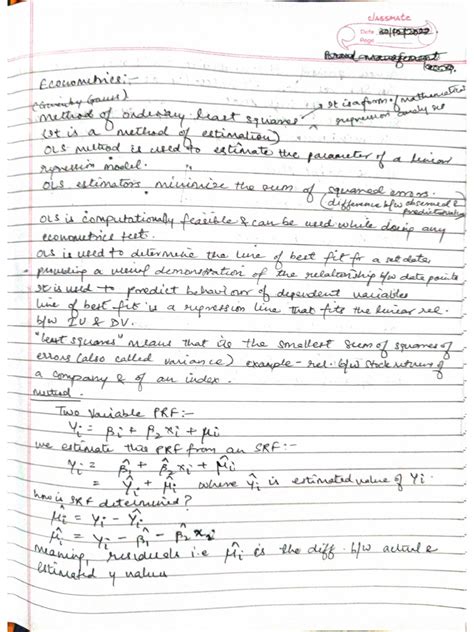 classmate
Date 30/12/2022
Page
Brand management
Econometrics:-
(Given by Gauss)
method of ordinary least squares → It is a form of mathematical
regression analysis
(It is a method of estimation)
OLS method is used to estimate the parameter of a linear
regression model.
OLS estimators minimize the sum of squared errors.
(difference b/w observed &
predicted value)
OLS is computationally feasible & can be used while doing any
econometrics test.
OLS is used to determine the line of best fit for a set data
providing a visual demonstration of the relationship b/w data points
It is used to predict behaviour of dependent variables
line of best fit is a regression line that fits the linear rel.
b/w IV & DV.
"least squares" means that it is the smallest sum of squares of
errors (also called variance) example - rel. b/w stock returns of
a company & of an index.
method.
Two Variable PRF:-
Yi = βi + β2xi + μi
we estimate this PRF from an SRF:-
Yi = β̂1 + β̂2xi + μ̂i
= Ŷi + μ̂i where Ŷi is estimated value of Yi
how is SRF determined?
μ̂i = Yi - Ŷi
μ̂i = Yi - β̂1 - β̂2x2i
meaning, residuals i.e μ̂i is the diff. b/w actual &
estimated y values